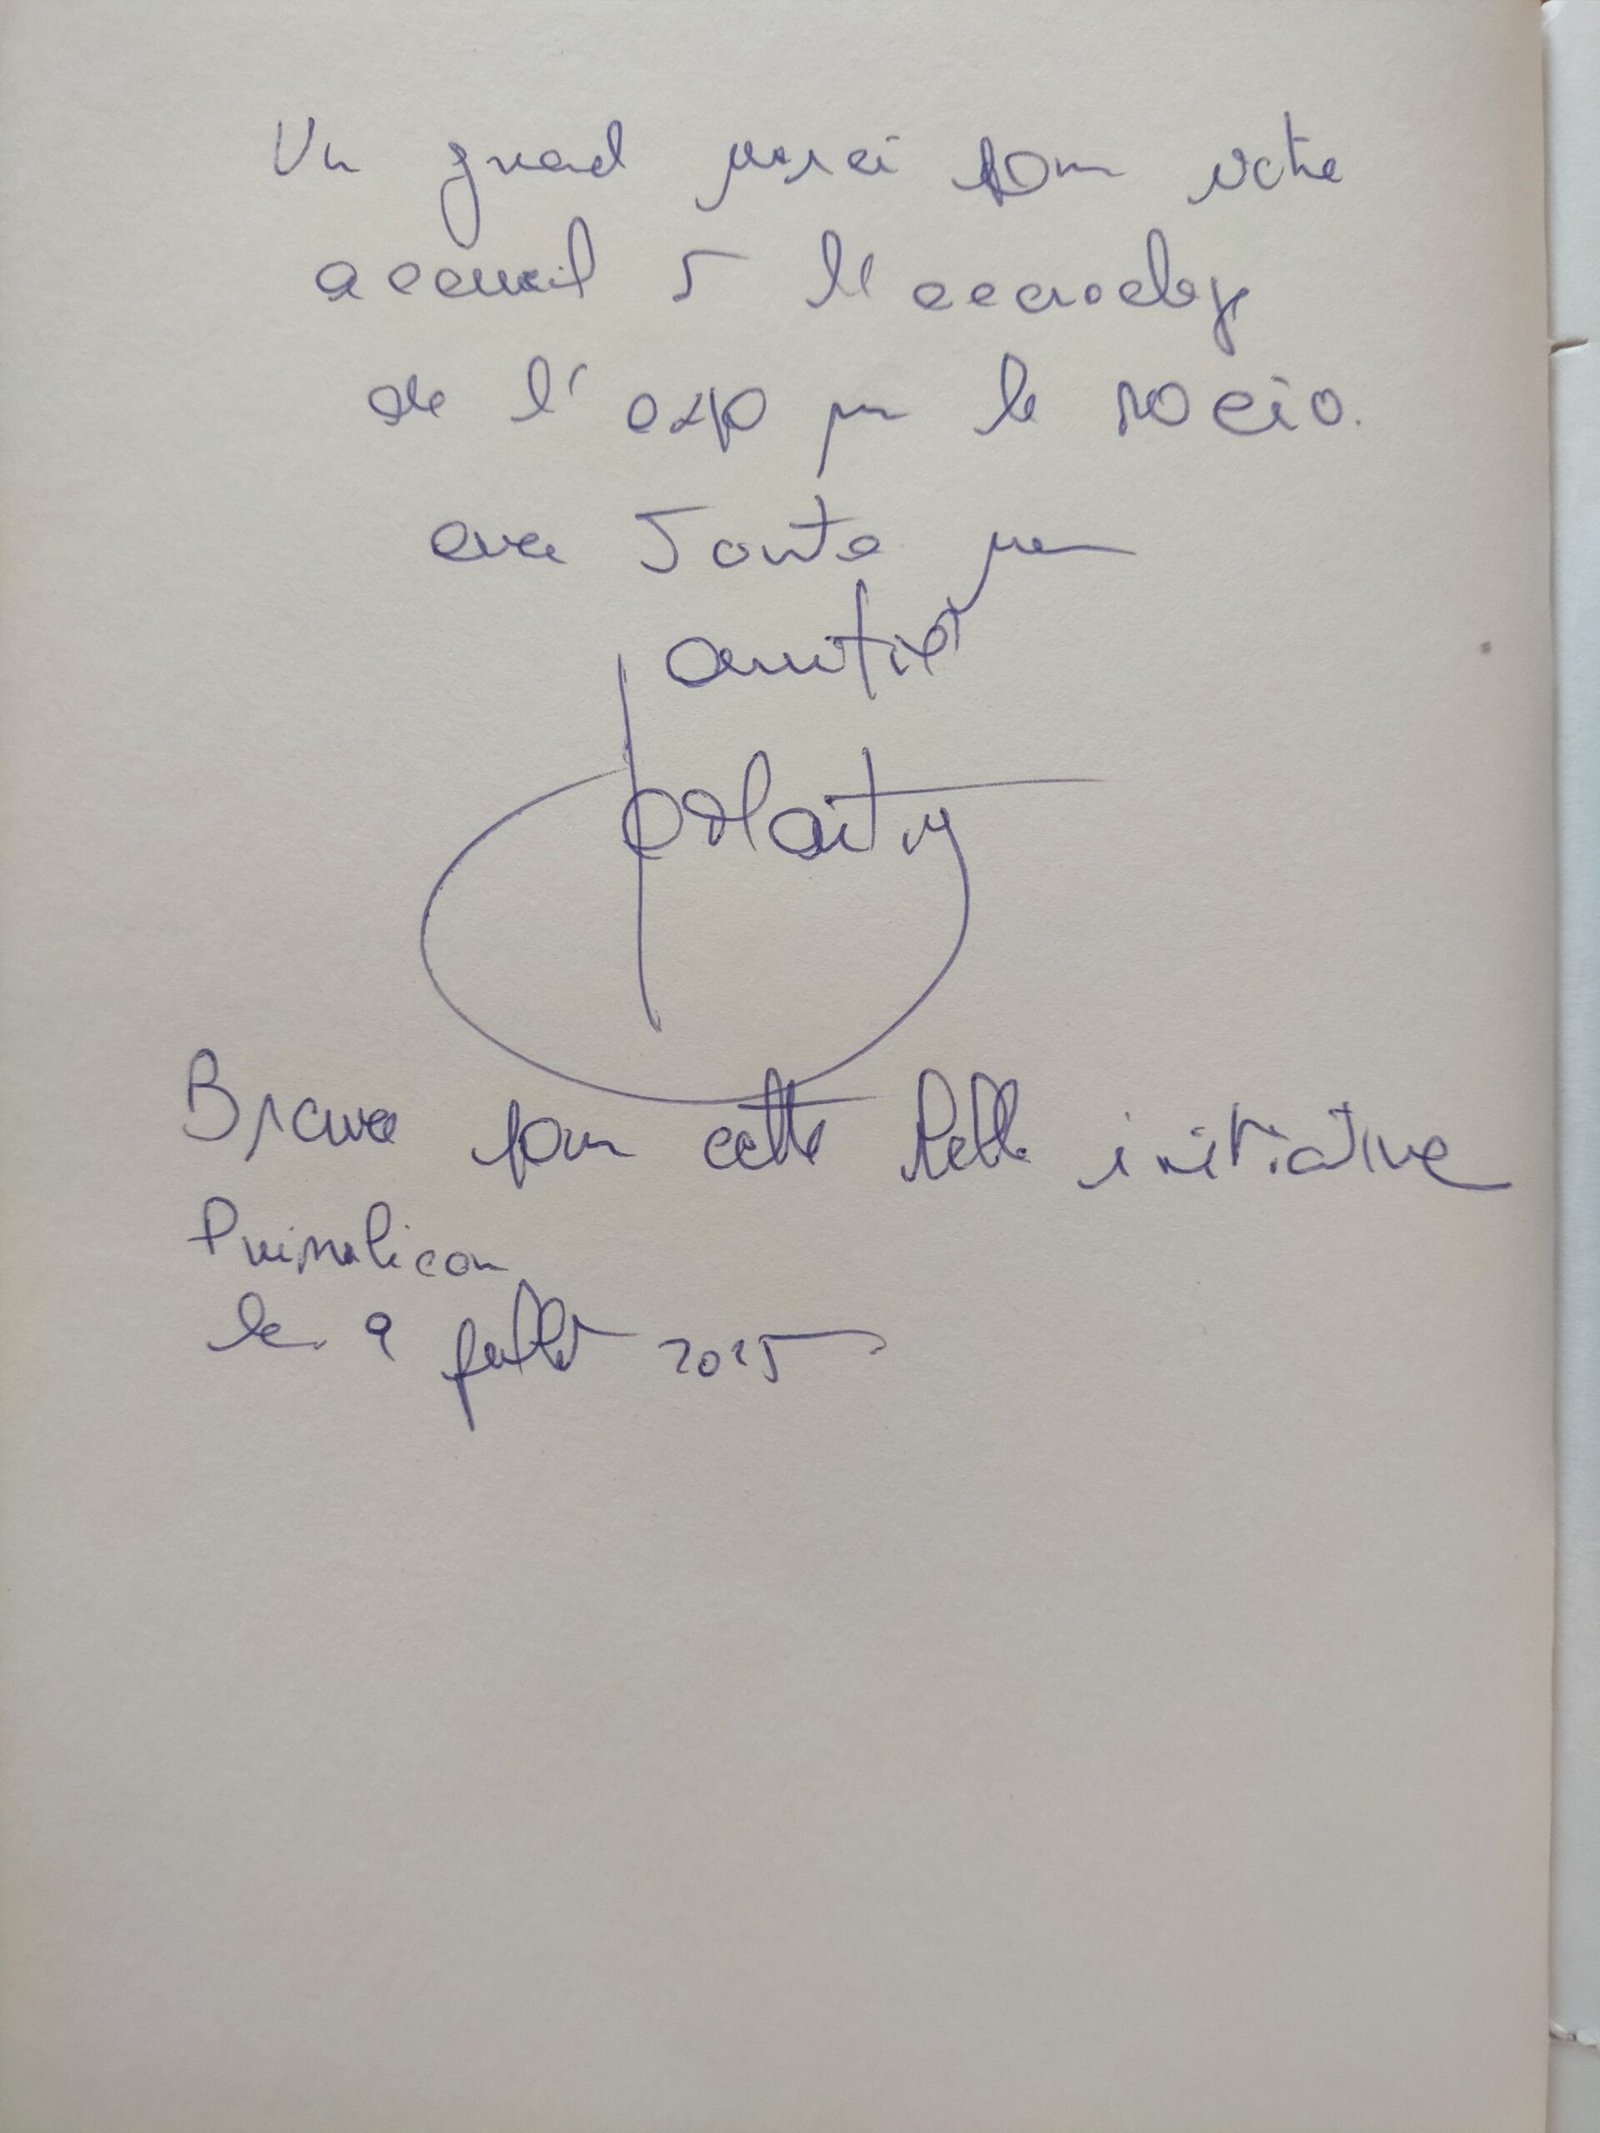 Un grand merci pour votre
accueil à l'accrochage
de l'expo sur le rocio.
avec toute mon
amitié
Bravo pour cette belle initiative
Puimalicon
le 9 juillet 2025